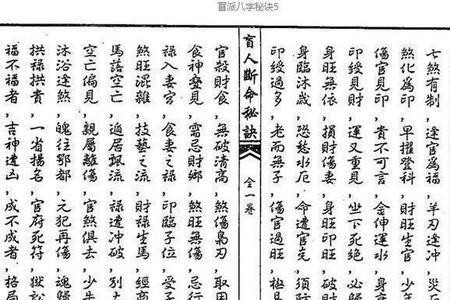 盲派八字秘诀5
七煞有制，逢官為福，羊刃逢冲，災
煞化為印，早擢登科，財旺生官，少年
傷官見印，貴不可言，金伸運水，
印綬見財，運又重見，坐下死絕，必
身旺無依，損財傷妻，身旺印旺，破
身臨沐敗，恐妨水厄，命遭官克，須
印綬過多，老而無子，傷官過旺，極
盲人斷命秘訣
全一卷
官殺財食，無破清高，煞傷梟刃，取
食神叠見，需忌財鄉，煞旺無傷，忌行
祿入妻宮，食妻之祿，印臨子位，受子
煞旺混雜，技藝之流，財祿生馬，經
馬落空亡，遁居飄流，祿遭冲破，別
空亡偏見，親屬離傷，官煞俱去，少
沐浴逢煞，魄往鄷都，元犯再傷，魂歸
拱祿拱貴，一省揚名，官府死符，獄
福不福者，吉神遭凶，成不成者，格局